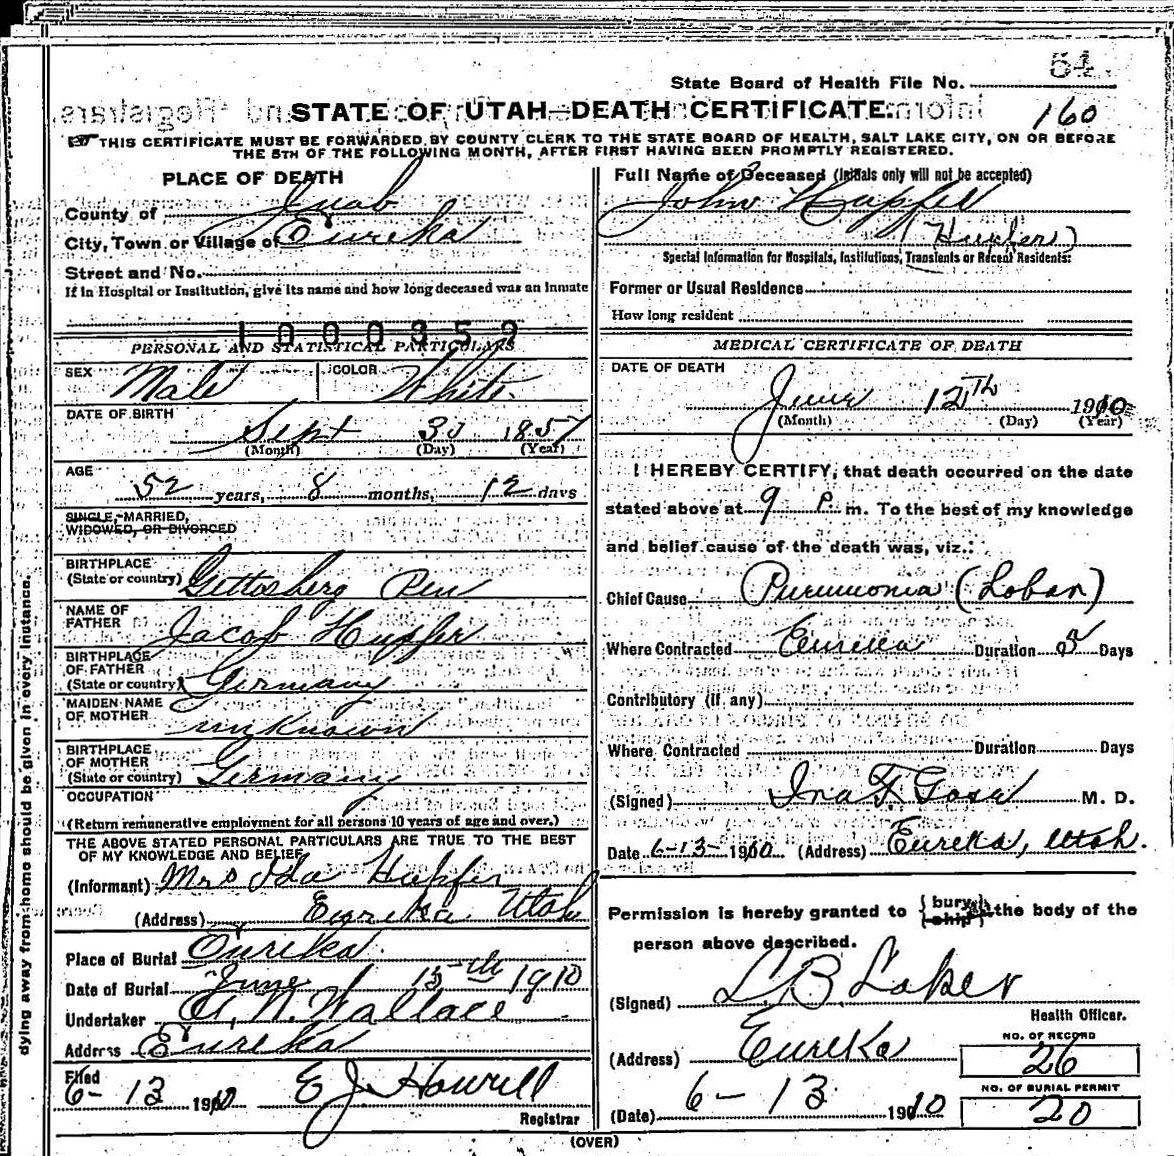 54
State Board of Health File No.
STATE OF UTAH—DEATH CERTIFICATE.
160
THIS CERTIFICATE MUST BE FORWARDED BY COUNTY CLERK TO THE STATE BOARD OF HEALTH, SALT LAKE CITY, ON OR BEFORE
THE 5TH OF THE FOLLOWING MONTH, AFTER FIRST HAVING BEEN PROMPTLY REGISTERED.
PLACE OF DEATH
County of Juab
City, Town or Village of Eureka
Street and No.
If in Hospital or Institution, give its name and how long deceased was an inmate
1000352
PERSONAL AND STATISTICAL PARTICULARS
SEX Male COLOR White
DATE OF BIRTH
Sept 30 1857
(Month) (Day) (Year)
AGE
52 years, 8 months, 12 days
SINGLE, MARRIED,
WIDOWED, OR DIVORCED
BIRTHPLACE
(State or country) Gettosberg Pen
NAME OF
FATHER Jacob Hupfer
BIRTHPLACE
OF FATHER
(State or country) Germany
MAIDEN NAME
OF MOTHER unknown
BIRTHPLACE
OF MOTHER
(State or country) Germany
OCCUPATION
(Return remunerative employment for all persons 10 years of age and over.)
THE ABOVE STATED PERSONAL PARTICULARS ARE TRUE TO THE BEST
OF MY KNOWLEDGE AND BELIEF
(Informant) Mrs Ida Hupfer
(Address) Eureka Utah
Place of Burial Eureka
Date of Burial June 15th 1910
Undertaker A. N. Wallace
Address Eureka
Filed
6- 13 1910 E J. Howell
Registrar
dying away from home should be given in every instance.
Full Name of Deceased (Initials only will not be accepted)
John Hapfer
(Hupfer)
Special Information for Hospitals, Institutions, Transients or Recent Residents:
Former or Usual Residence
How long resident
MEDICAL CERTIFICATE OF DEATH
DATE OF DEATH
June 12TH 1910
(Month) (Day) (Year)
I HEREBY CERTIFY, that death occurred on the date
stated above at 9 P. m. To the best of my knowledge
and belief cause of the death was, viz.:
Chief Cause Pneumonia (Lobar)
Where Contracted Eureka Duration 5 Days
Contributory (if any)
Where Contracted Duration Days
(Signed) Ira F. Gose M. D.
Date 6-13-1910 (Address) Eureka, Utah.
Permission is hereby granted to {bury, ship} the body of the
person above described.
(Signed) L B Laker
Health Officer.
(Address) Eureka
NO. OF RECORD
26
NO. OF BURIAL PERMIT
20
(Date) 6- 13 1910
(OVER)